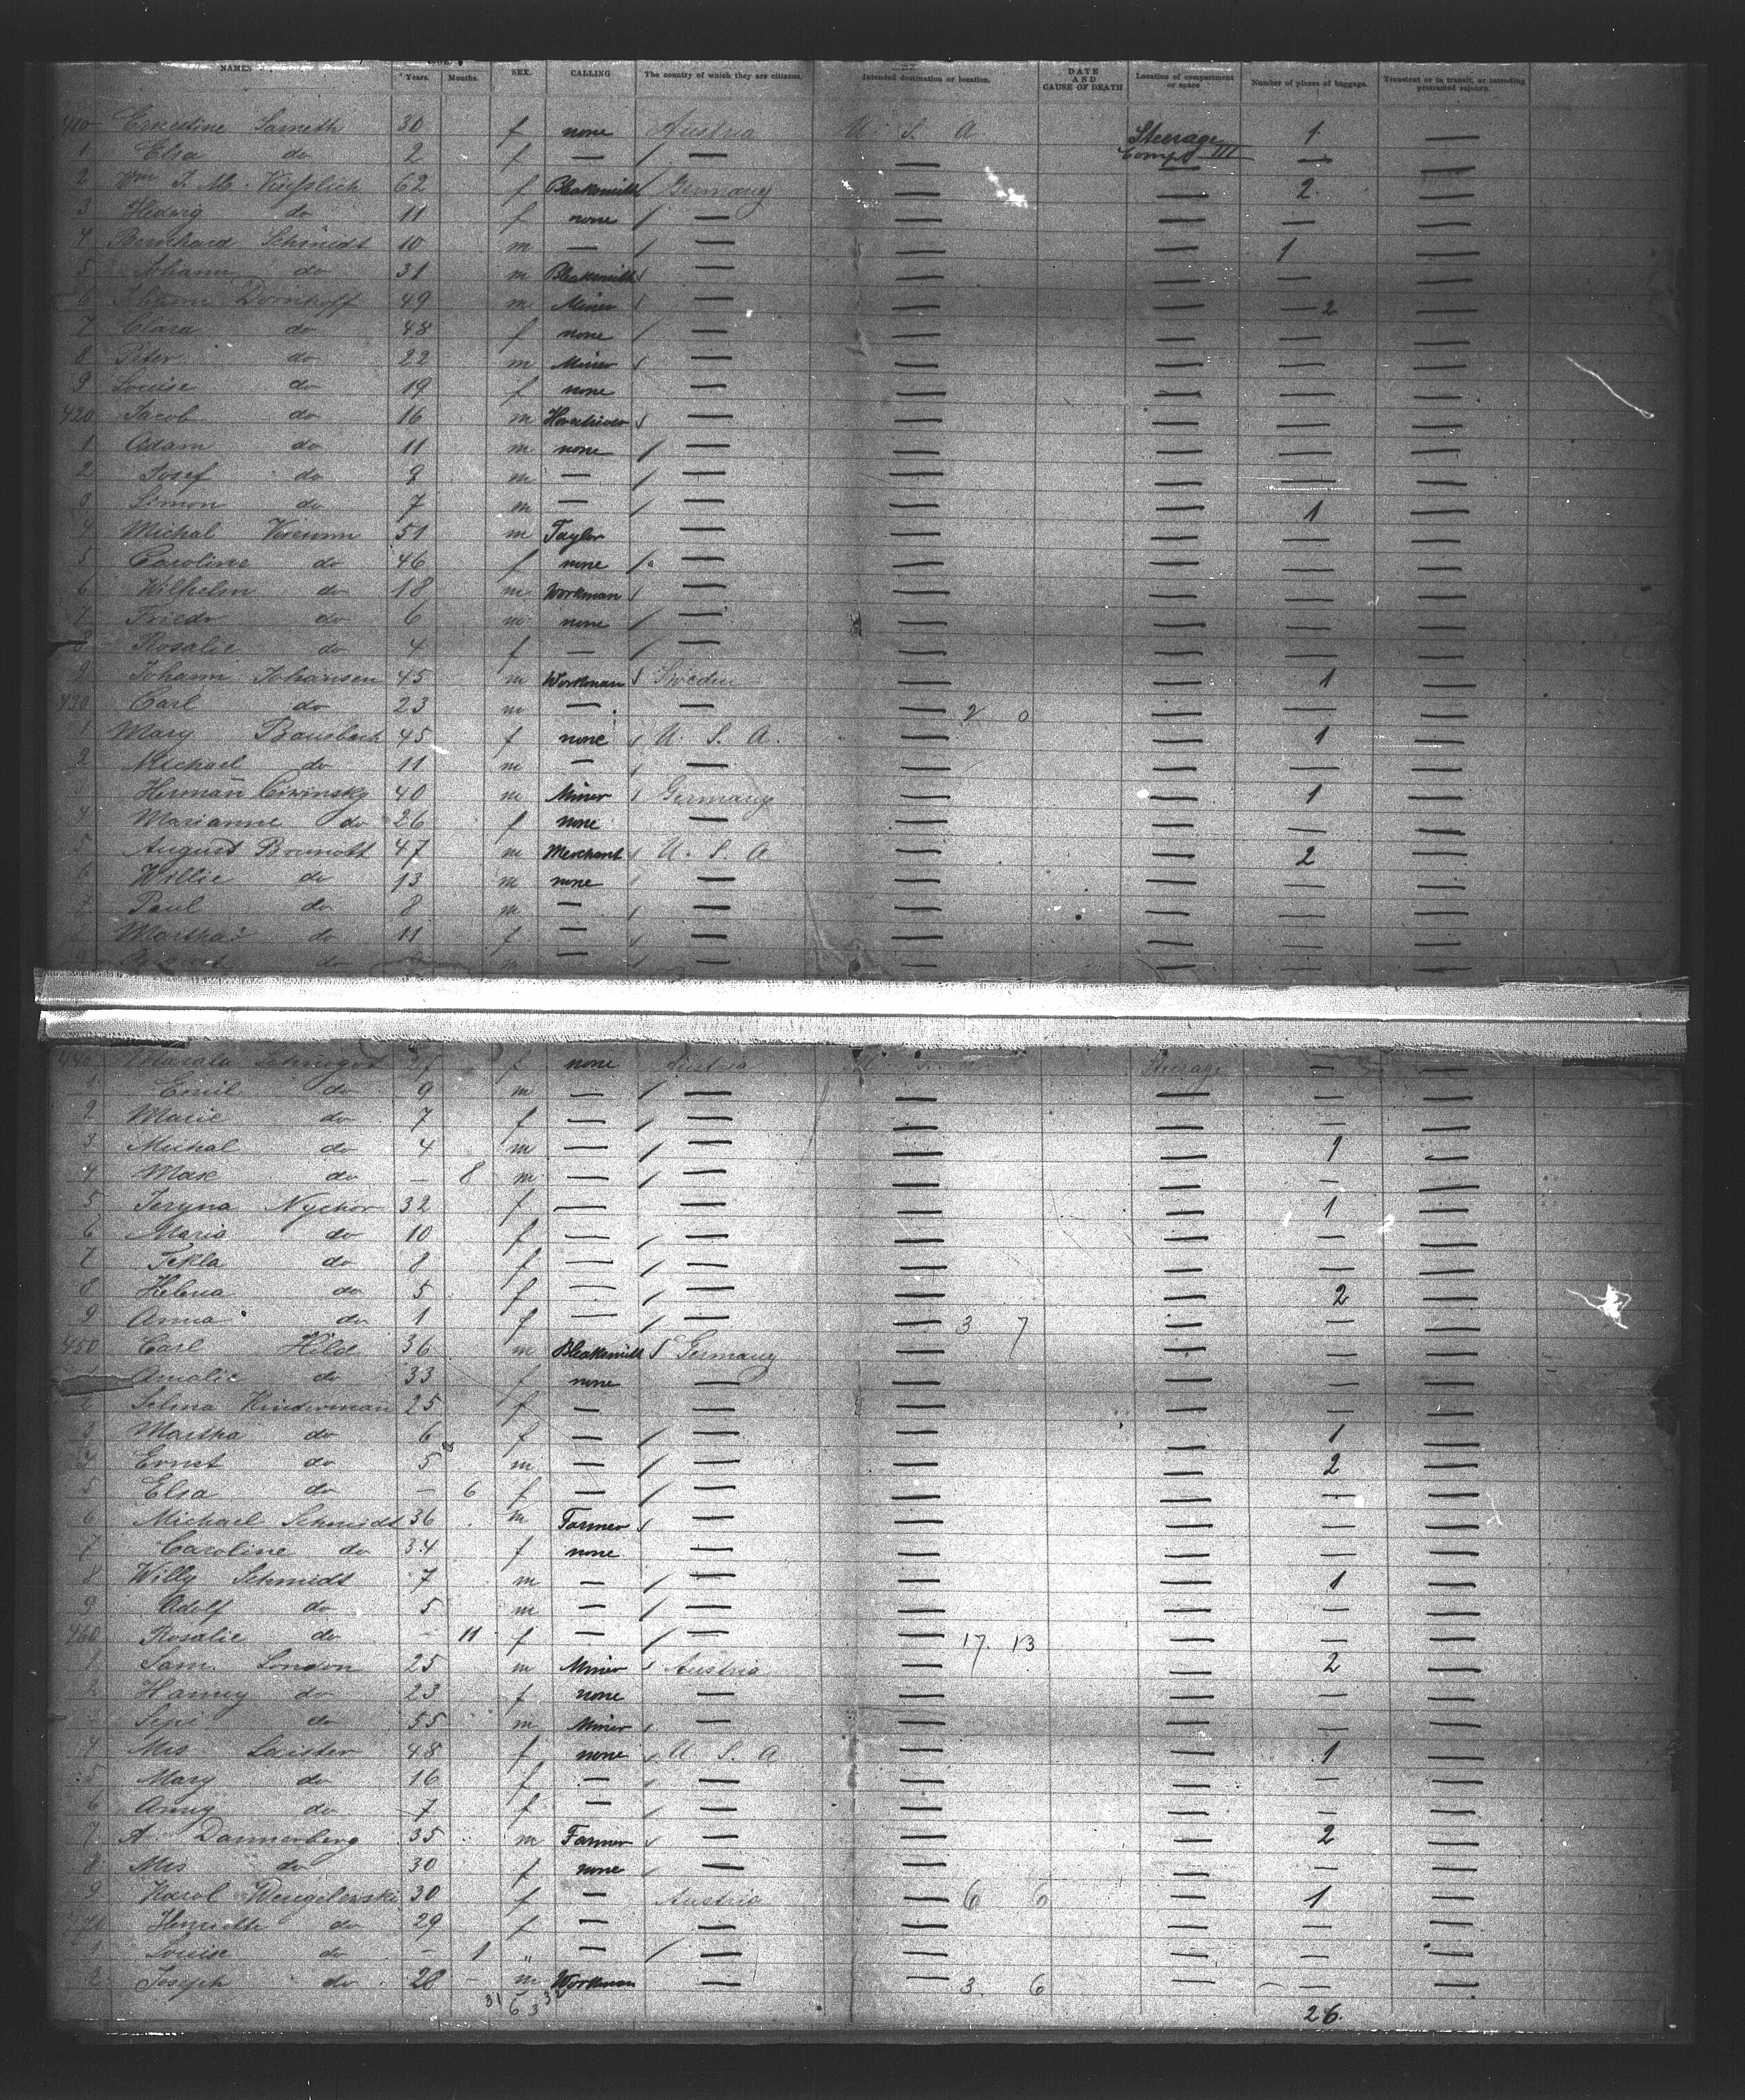 NAMES Years. Months. SEX. CALLING The country of which they are citizens. Intended destination or location. DATE AND CAUSE OF DEATH Location of compartment or space Number of pieces of baggage. Transient or in transit, or intending protracted sojourn.
410 Ernestine 30 f none Austria U. S. A. Steerage Comp III 1 —
1 Elsa do 2 f — — — — — —
2 Wm J. M. 62 f Blaksmith Germany — — 2 —
3 Hedwig do 11 f none — — — — —
4 Bernhard Schmidt 10 m — — — — 1 —
5 Johann do 31 m Blaksmith — — — — —
6 Dornhoff 49 m Miner — — — 2 —
7 Clara do 48 f none — — — — —
8 Peter do 22 m Miner — — — — —
9 Louise do 19 f none — — — — —
420 Jacob do 16 m — — — — —
1 Adam do 11 m none — — — — —
2 Josef do 9 m — — — — — —
3 Simon do 7 m — — — — 1 —
4 Michal 51 m Taylor — — — — —
5 Caroline do 46 f none — — — — —
6 Wilhelm do 18 m Workman — — — — —
7 Friedr do 6 m none — — — — —
8 Rosalie do 4 f — — — — — —
9 Johann Johansen 45 m Workman Sweden — — 1 —
430 Carl do 23 m — — — 2 0 — — —
1 Mary Bausbach 45 f none U. S. A. — — 1 —
2 Michael do 11 m — — — — — —
3 Herman 40 m Miner Germany — — 1 —
4 Marianne do 26 f none — — — — —
5 August 47 m Merchant U. S. A — — 2 —
6 Willie do 13 m none — — — — —
7 Paul do 8 m — — — — — —
8 Martha do 11 f — — — — — —
9 do m — — — — — —
440 27 f none Austria Steerage — —
1 Emil do 9 m — — — — — —
2 Marie do 7 f — — — — — —
3 Michal do 4 m — — — — 1 —
4 Max do — 8 m — — — — — —
5 Jeryna Nychor 32 f — — — — 1 —
6 Maria do 10 f — — — — — —
7 Tekla do 8 f — — — — — —
8 Helena do 5 f — — — — 2 —
9 Anna do 1 f — — — 3 7 — — —
450 Carl Hilde 36 m Blaksmith Germany — — — —
1 Amalie do 33 f none — — — — —
2 Selma Kinderman 25 f — — — — — —
3 Martha do 6 f — — — — 1 —
4 Ernst do 5 m — — — — 2 —
5 Elsa do — 6 f — — — — — —
6 Michael Schmidt 36 m Farmer — — — — —
7 Caroline do 34 f none — — — — —
8 Willy Schmidt 7 m — — — — 1 —
9 Adolf do 5 m — — — — — —
460 Rosalie do — 11 f — — — 17. 13 — — —
1 Sam London 25 m Miner Austria — — 2 —
2 Hanny do 23 f none — — — — —
do 55 m Miner — — — — —
4 Mrs Laister 48 f none U S. A — — 1 —
5 Mary do 16 f — — — — — —
6 Anny do 7 f — — — — — —
7 A Dannenberg 35 m Farmer — — — 2 —
8 Mrs do 30 f none — — — — —
9 Karol 30 f — Austria — 6 6 — 1 —
470 do 29 f — — — — — —
1 Louise do — 1 " — — — — — —
2 Joseph do 28 — m Workman — — 3. 6 — — —
31 6 3 32 26.